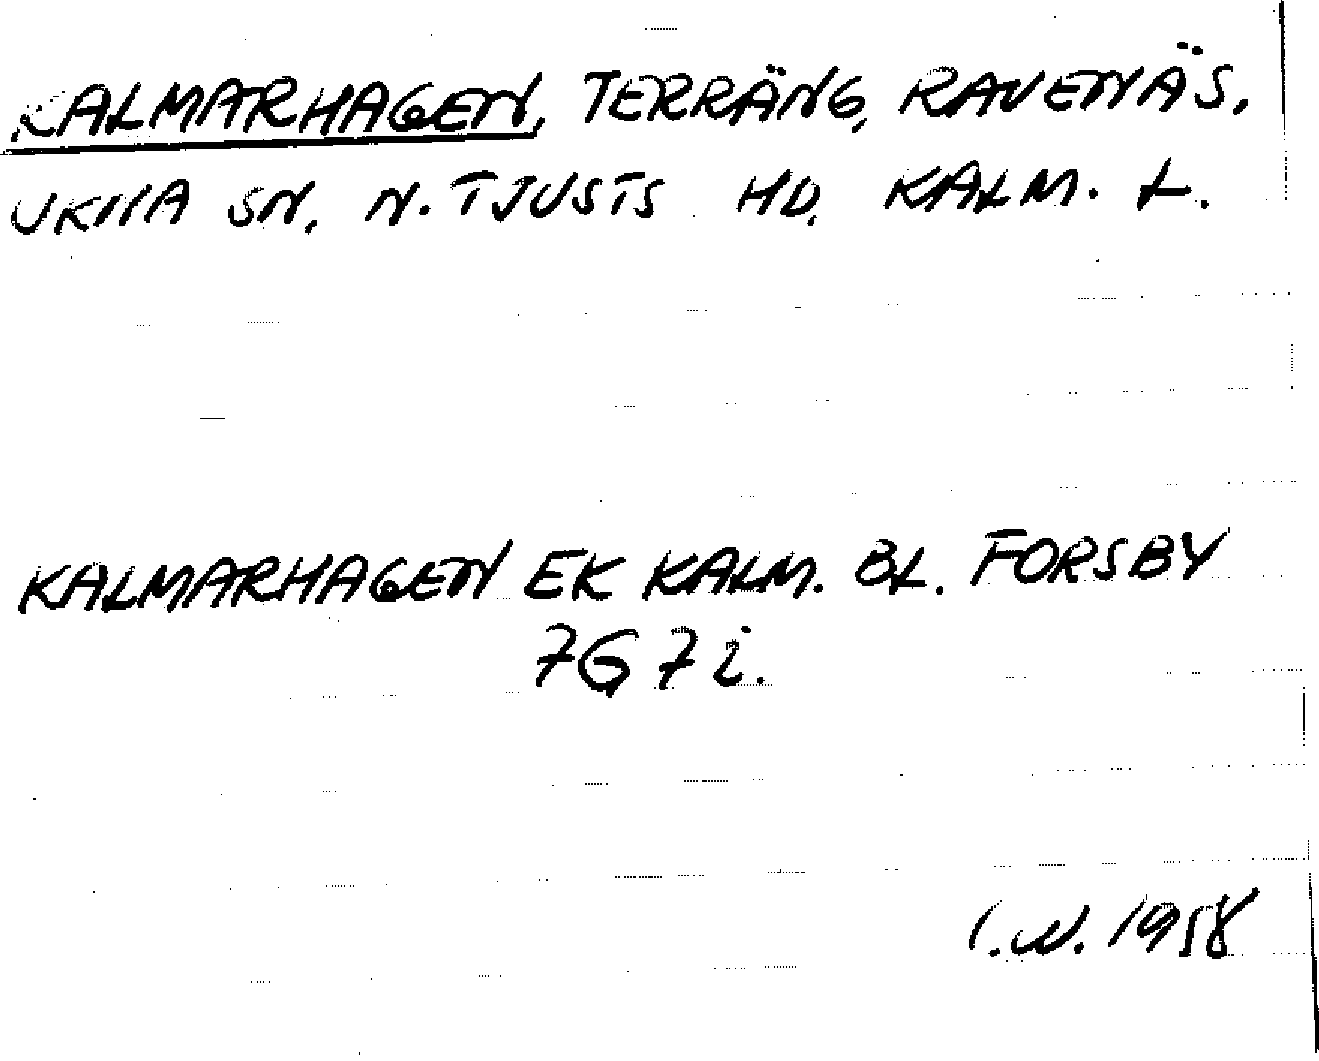 KALMARHAGEN, TERRÄNG, RAVENÄS,
UKNA SN, N. TJUSTS HD, KALM. L.
KALMARHAGEN EK KALM. BL. FORSBY
7G 7i.
I.N. 1958